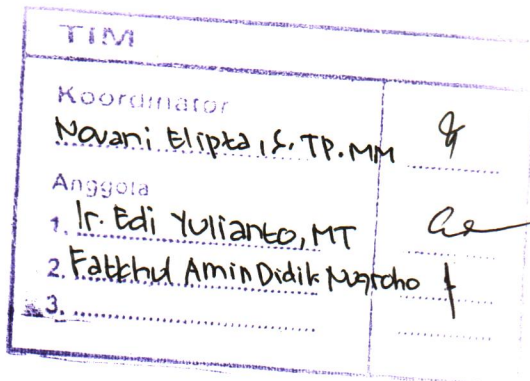 TIM
Koordinator
Novani Elipta, S. TP. MM
Anggota
1. Ir. Edi Yulianto, MT
2. Fatkhul Amin Didik Nugroho
3.